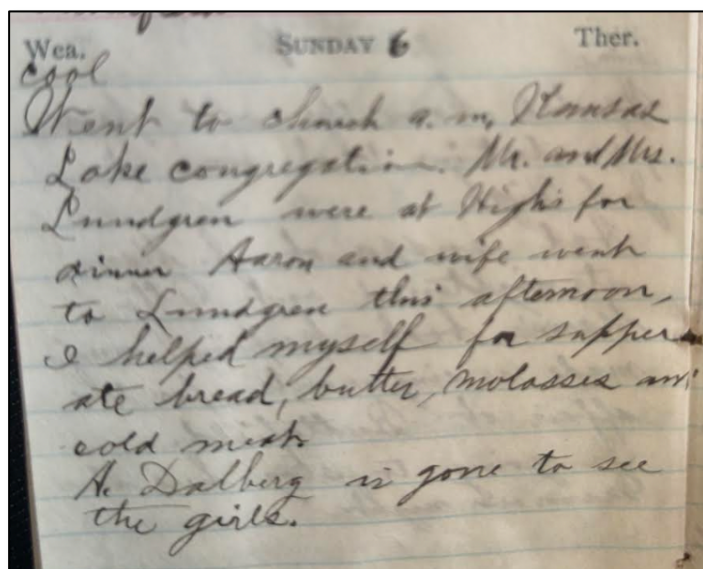 Wea. SUNDAY 6 Ther.
cool
Went to church a.m, Kansas
Lake congregation. Mr. and Mrs.
Lundgren were at High's for
dinner Aaron and wife went
to Lundgren this afternoon,
I helped myself for supper
ate bread, butter, molasses and
cold meat.
A. Dalberg is gone to see
the girls.